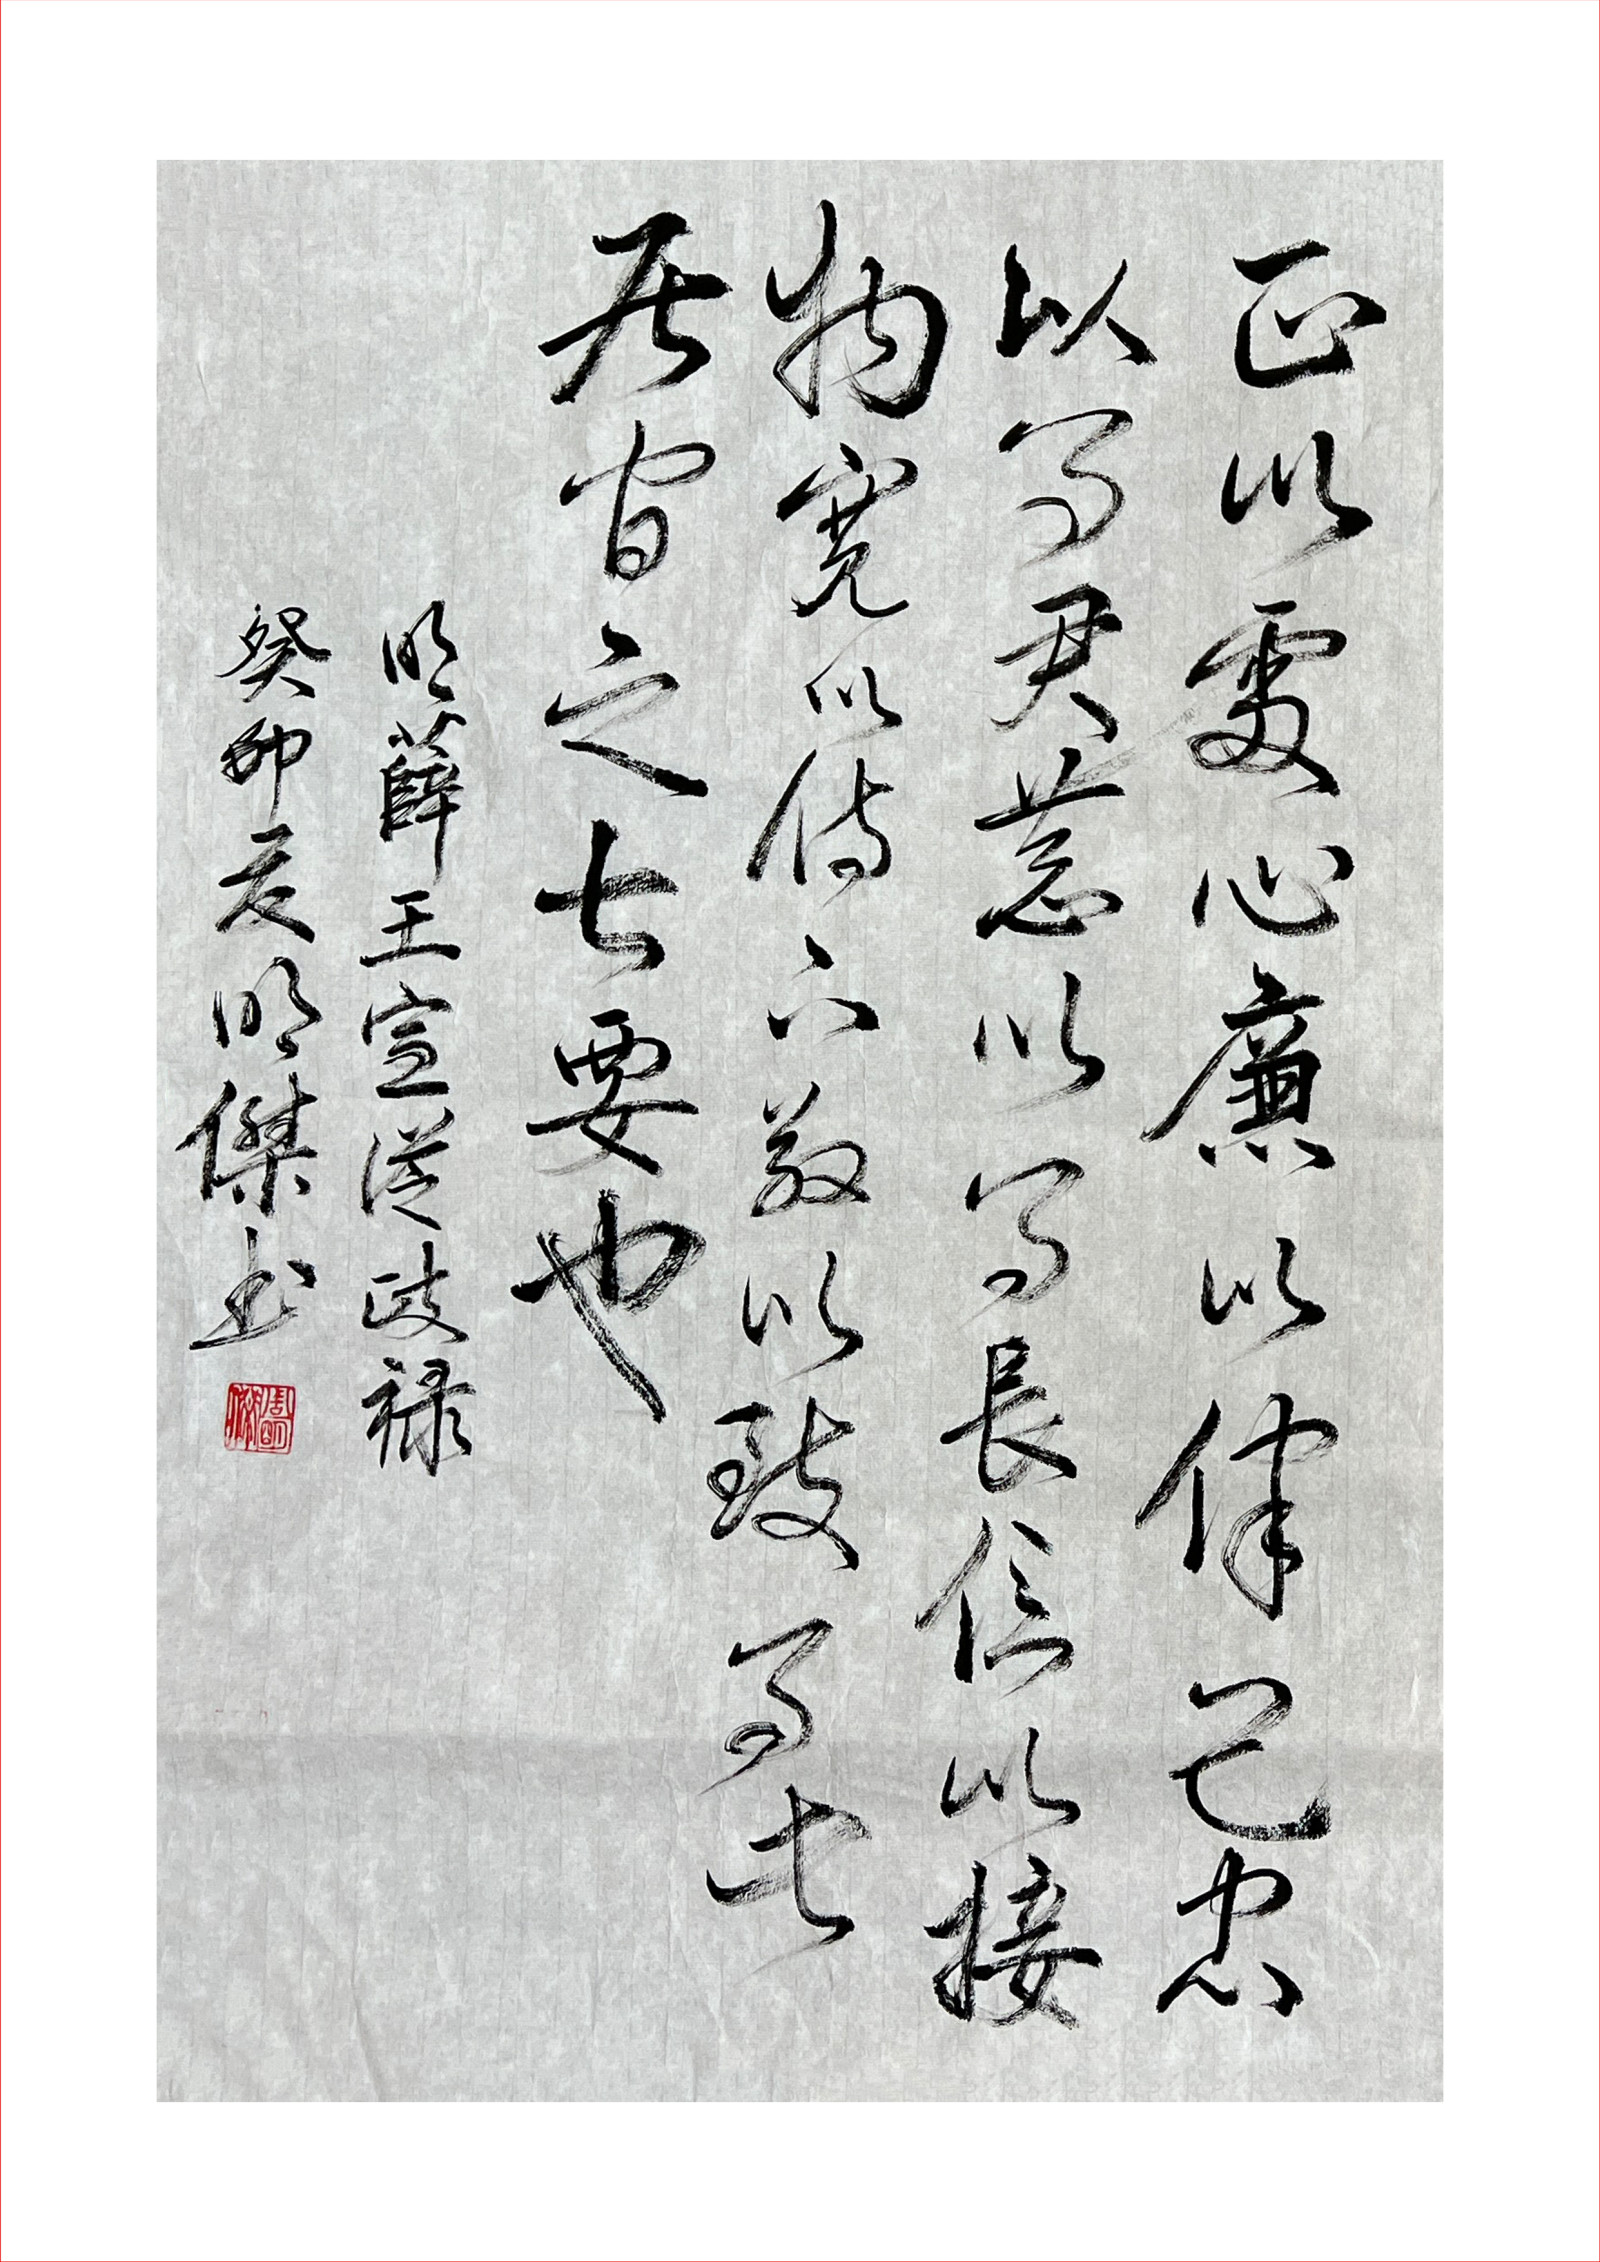 正以處心廉以律己忠
以事君恭以事長信以接
物寬以待下敬以致事此
居官之七要也
明薛王宣從政禄
癸卯夏明傑书
周明傑